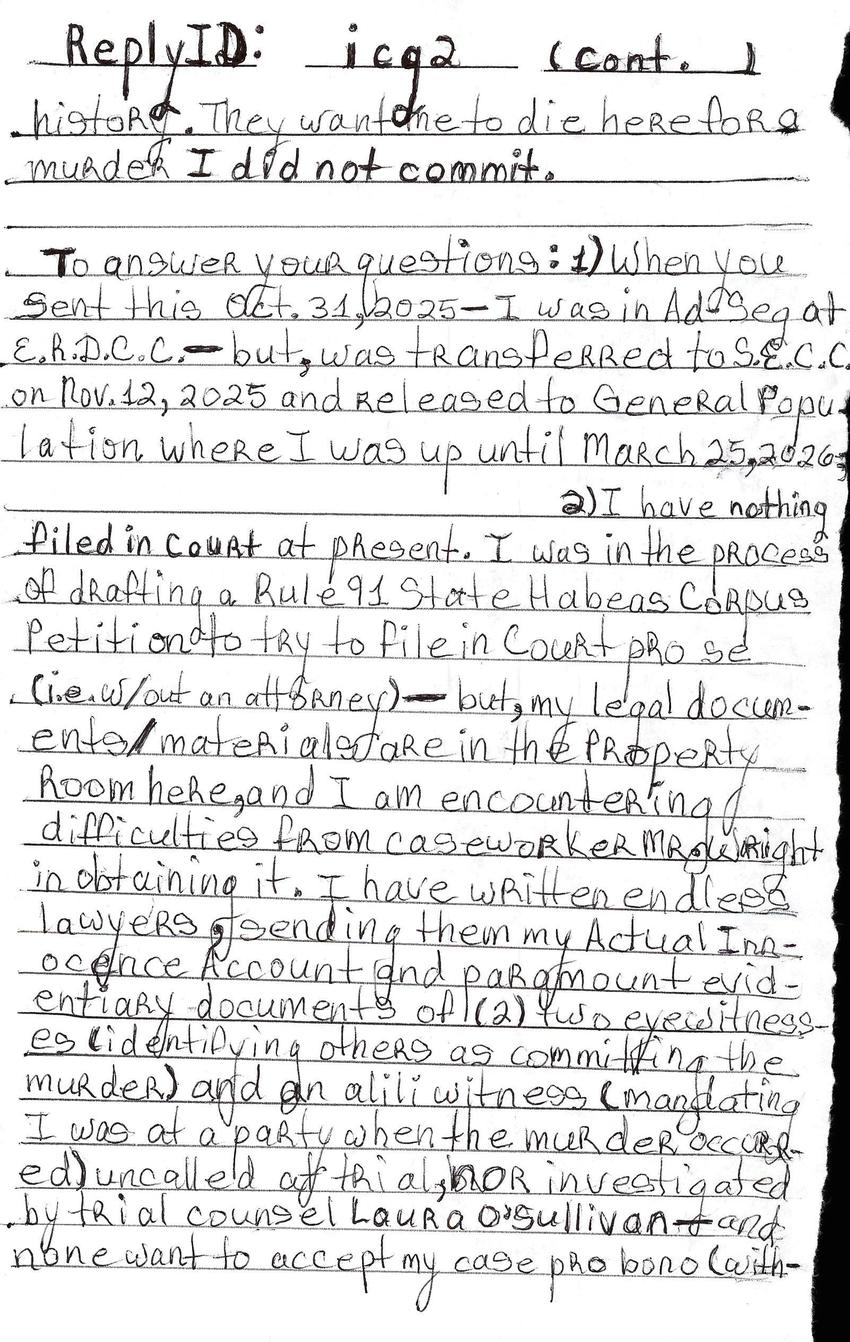 ReplyID: icg2 (cont. )
history. They want me to die here for a
murder I did not commit.
To answer your questions: 1) When you
sent this Oct. 31, 2025 - I was in Ad-Seg at
E.R.D.C.C. - but, was transferred to S.E.C.C.
on Nov. 12, 2025 and released to General Popu-
lation where I was up until March 25, 2026;
2) I have nothing
filed in court at present. I was in the process
of drafting a Rule 91 State Habeas Corpus
Petition to try to file in Court pro se
(i.e. w/out an attorney) - but, my legal docum-
ents/materials are in the Property
Room here, and I am encountering
difficulties from caseworker Mr. Wright
in obtaining it. I have written endless
lawyers, sending them my Actual Inn-
ocence Account and paramount evid-
entiary documents of (2) two eyewitness-
es (identifying others as committing the
murder) and an alili witness (mandating
I was at a party when the murder occurr-
ed) uncalled at trial, nor investigated
by trial counsel Laura O'Sullivan - and
none want to accept my case pro bono (with-